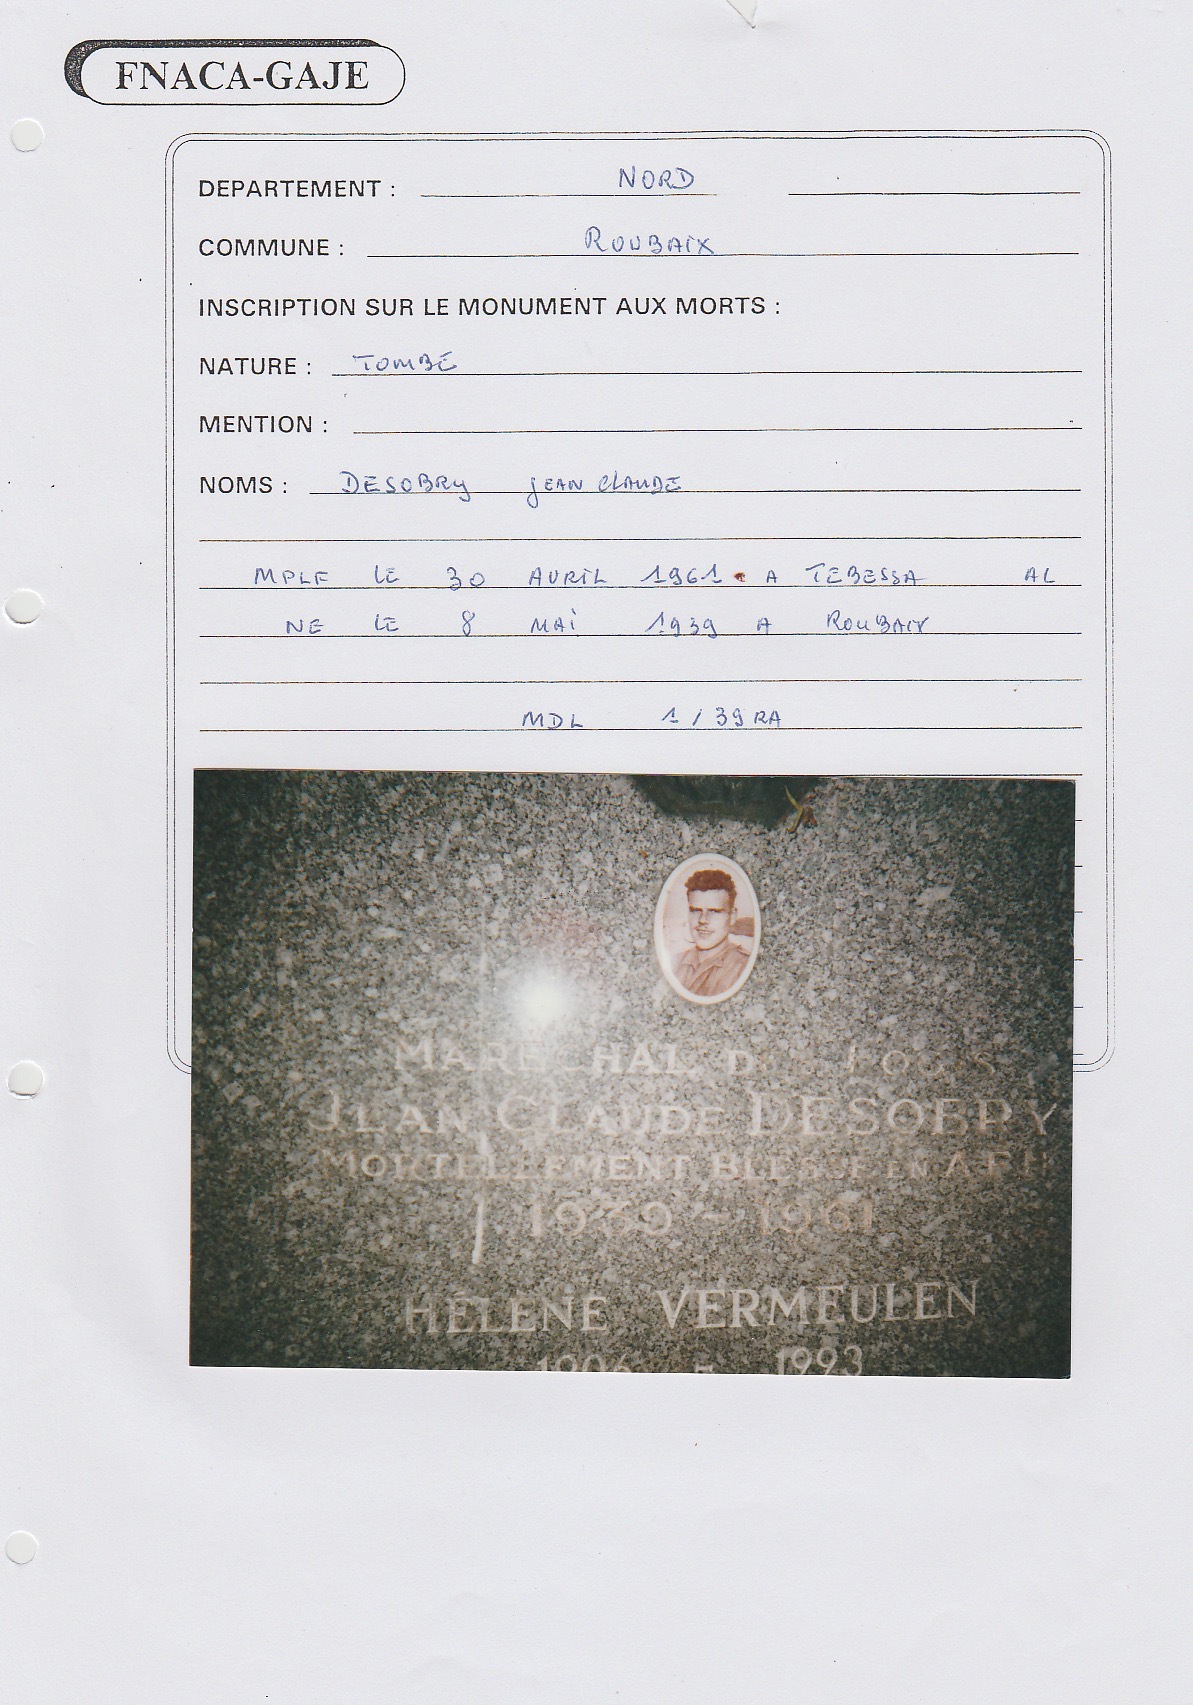 FNACA-GAJE
DEPARTEMENT : NORD
COMMUNE : ROUBAIX
INSCRIPTION SUR LE MONUMENT AUX MORTS :
NATURE : TOMBE
MENTION :
NOMS : DESOBRY JEAN CLAUDE
MPLF LE 30 AVRIL 1961 A TEBESSA AL
NE LE 8 MAI 1939 A ROUBAIX
MDL 1/39 RA
MARECHAL DES LOGIS
JEAN CLAUDE DESOBRY
MORTELLEMENT BLESSE EN A.F.N
1939 - 1961
HELENE VERMEULEN
1906 - 1993